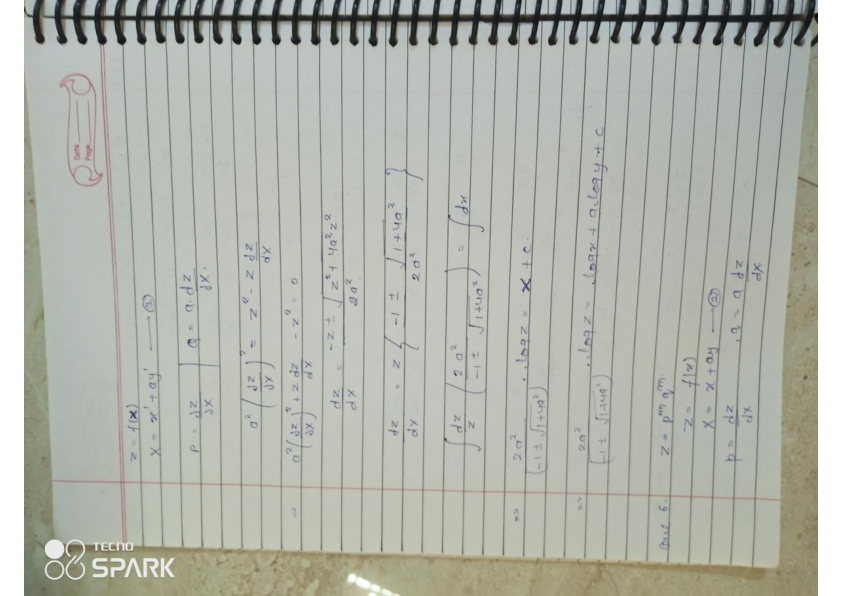 Date
Page
z = f(x)
X = x' + ay' → ②
P = dz/dx | Q = a. dz/dx.
a² (dz/dx)² = z² - z dz/dx
⇒ a² (dz/dx)² + z dz/dx - z² = 0
dz/dx = -z ± √z² + 4a²z² / 2a²
dz/dx = z { -1 ± √1+4a² / 2a² }
∫ dz/z ( 2a² / -1 ± √1+4a² ) = ∫ dx
⇒ 2a² / (-1 ± √1+4a²) . log z = x + c.
⇒ 2a² / (-1 ± √1+4a²) . log z = log x + a log y + c
Case 5. z = pᵐ qᵐ.
z = f(x)
X = x + ay → ②
p = dz/dx , q = a dz/dx
TECNO
SPARK